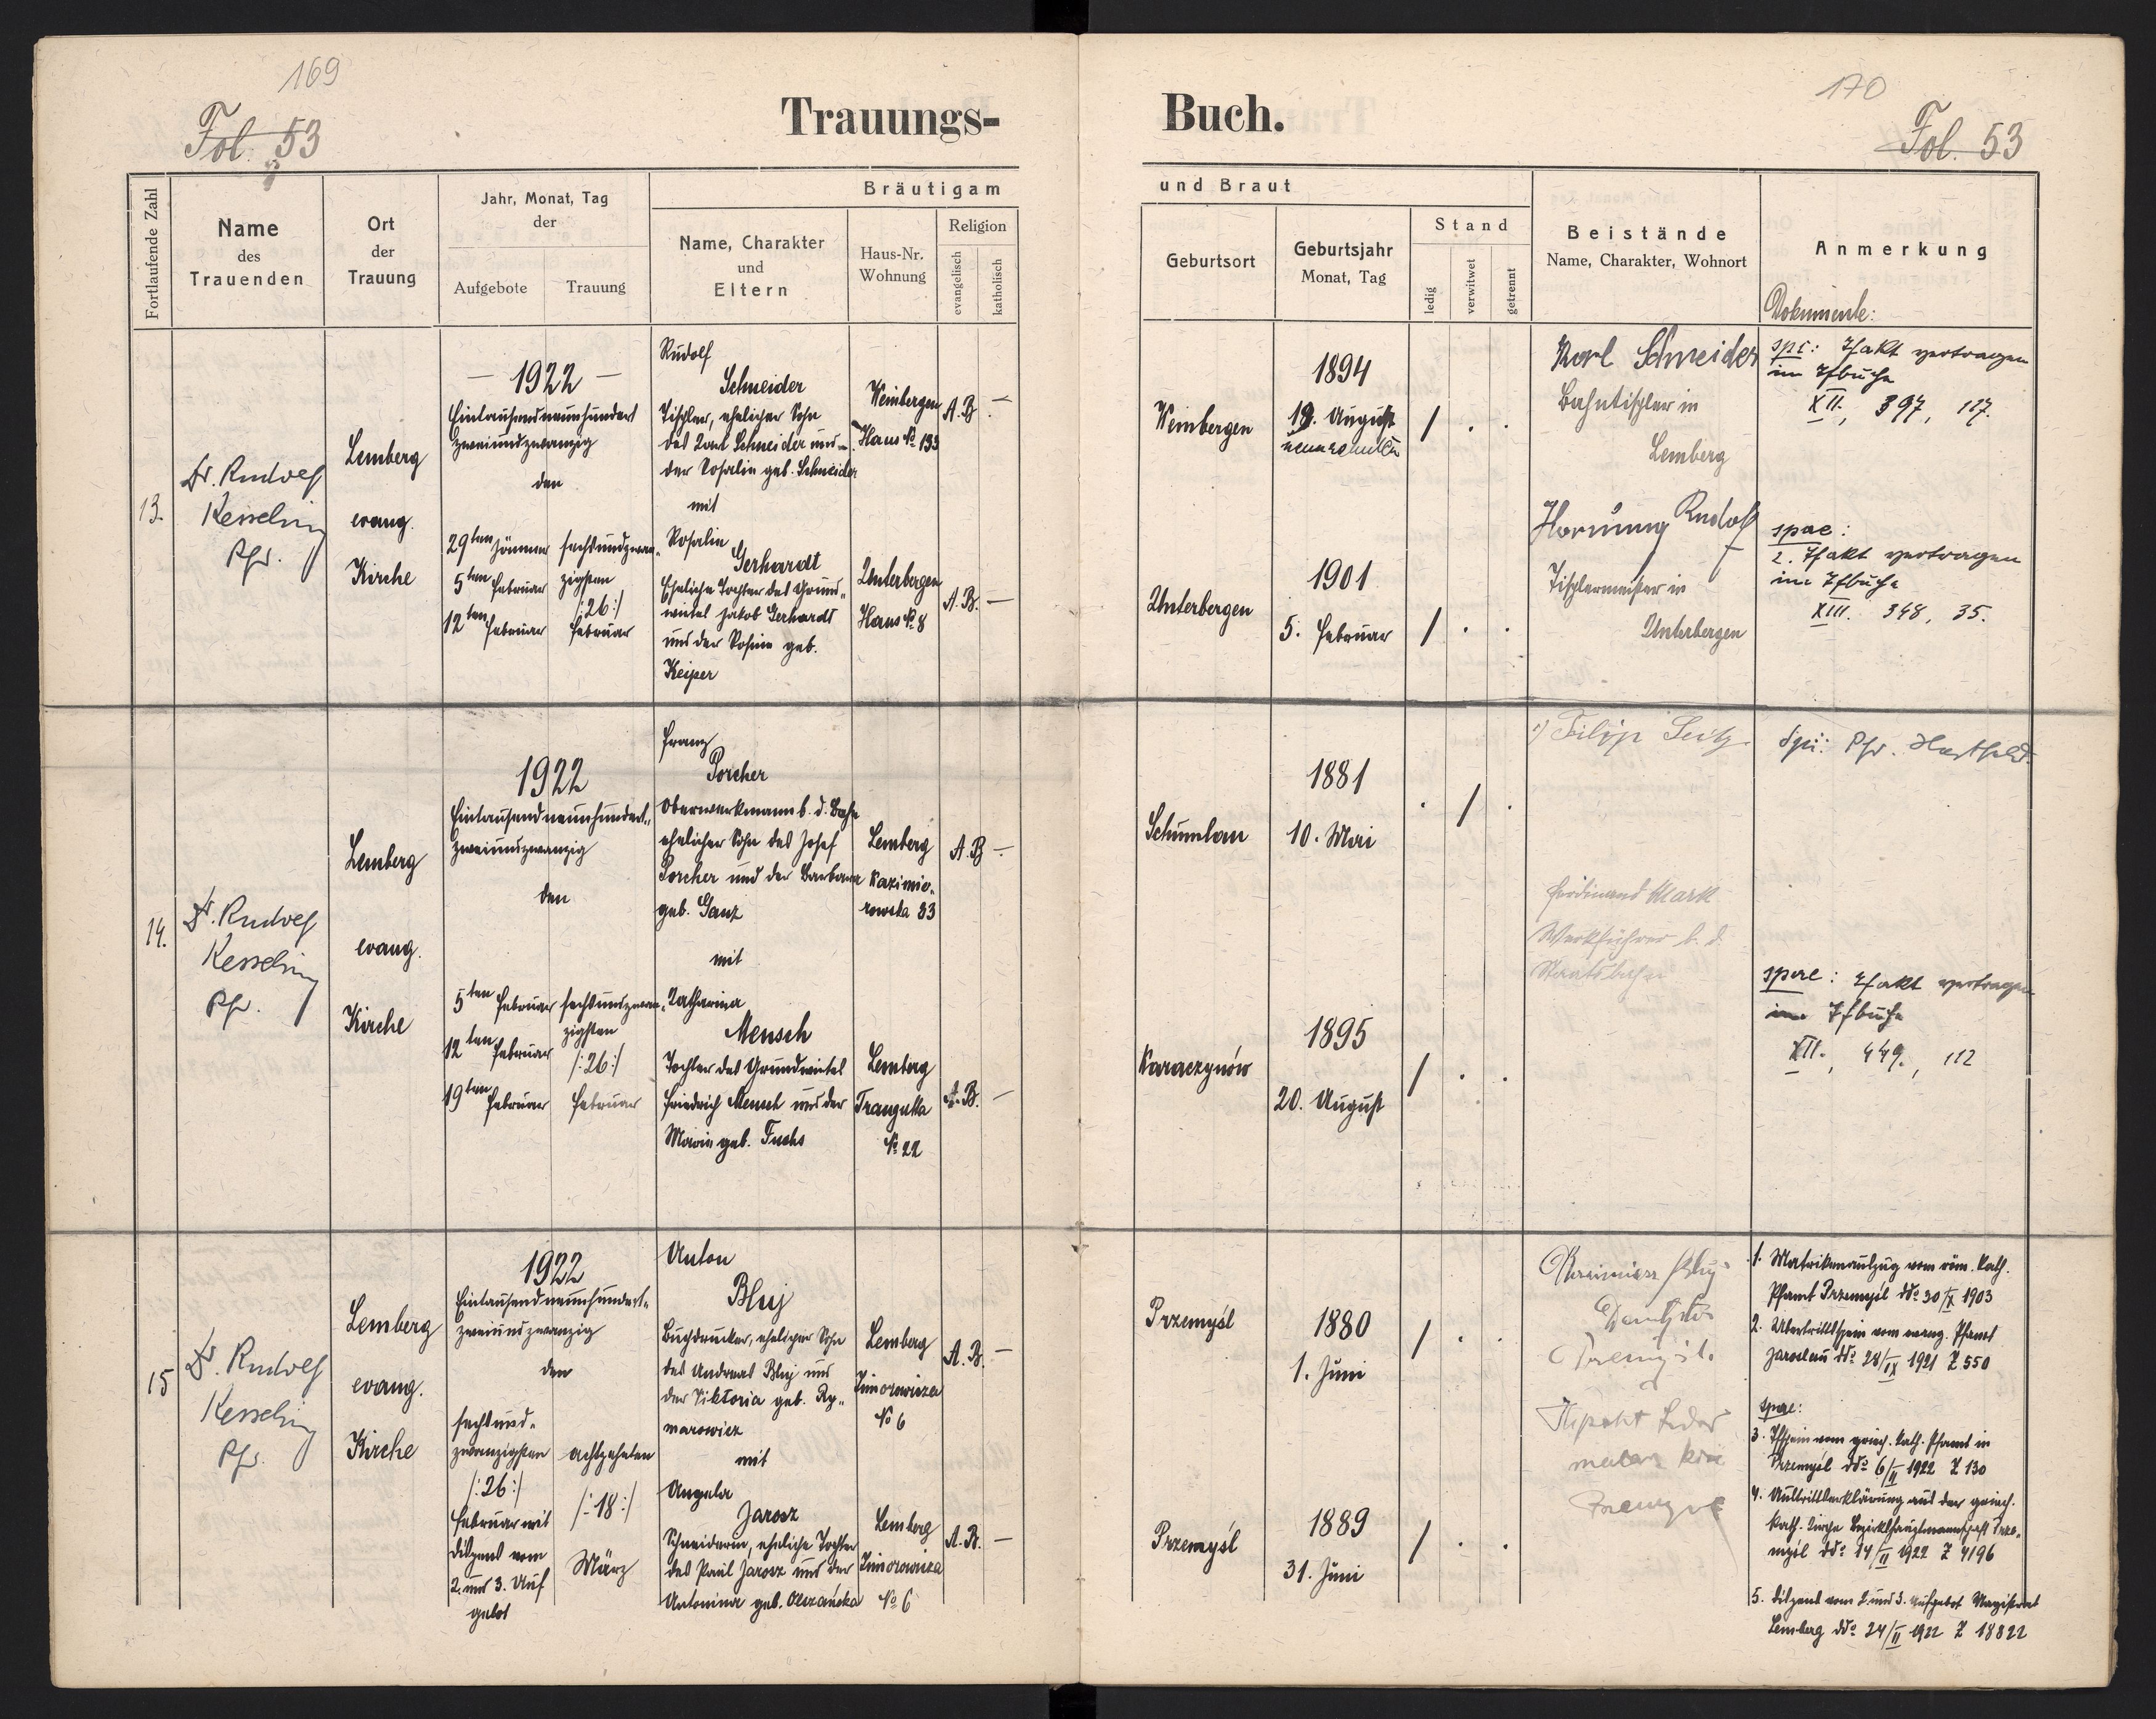 169
Fol. 53
Trauungs-
Fortlaufende Zahl
Name
des
Trauenden
Ort
der
Trauung
Jahr, Monat, Tag
der
Aufgebote
Trauung
Bräutigam
Name, Charakter
und
Eltern
Haus-Nr.
Wohnung
Religion
evangelisch
katholisch
13.
Dr. Rudolf
Kesselring
Pfr.
Lemberg
evang.
Kirche
— 1922 —
Eintausendneunhundert
zweiundzwanzig
den
29ten Jänner
5ten Februar
12ten Februar
sechsundzwan-
zigsten
/:26:/
Februar
Rudolf
Schneider
Tischler, ehelicher Sohn
des Karl Schneider und
der Rosalia geb. Schneider
mit
Rosalia
Gerhardt
Eheliche Tochter des Grund-
wirtes Jakob Gerhardt
und der Rosina geb.
Keiper
Weinbergen
Haus № 133
A.B. —
Unterbergen
Haus № 8
A.B. —
14.
Dr. Rudolf
Kesselring
Pfr.
Lemberg
evang.
Kirche
1922
Eintausendneunhundert-
zweiundzwanzig
den
5ten Februar
12ten Februar
19ten Februar
sechsundzwan-
zigsten
/:26:/
Februar
Franz
Porcher
Oberwerkmann b. d. Bahn
ehelicher Sohn des Josef
Porcher und der Barbara
geb. Ganz
mit
Katharina
Mensch
Tochter des Grundwirtes
Friedrich Mensch und der
Maria geb. Fuchs
Lemberg
Kazimie-
rowska 33
A.B. —
Lemberg
Franzuska
№ 22
A.B. —
15
Dr. Rudolf
Kesselring
Pfr.
Lemberg
evang.
Kirche
1922
Eintausendneunhundert-
zweiundzwanzig
den
sechsund-
zwanzigsten
/:26:/
Februar mit
Dispens vom
2. und 3. Auf
gebot
achtzehnten
/:18:/
März
Anton
Bluj
Buchdrucker, ehelicher Sohn
des Andreas Bluj und
der Viktoria geb. Ry-
marowicz
mit
Angela
Jarosz
Schneiderin, eheliche Tochter
des Paul Jarosz und der
Antonina geb. Olszańska
Lemberg
Zimorowicza
№ 6
A.B. —
Lemberg
Zimorowicza
№ 6
A.B. —
170
Fol. 53
Buch.
und Braut
Geburtsort
Geburtsjahr
Monat, Tag
Stand
ledig
verwitwet
getrennt
Beistände
Name, Charakter, Wohnort
Anmerkung
Dokumente:
Weinbergen
1894
19. August
neunzehnten
/ . .
Karl Schneider
Bahntischler in
Lemberg
spi: Tfakt vertragen
im Tfbuche
XII., 397, 117.
Unterbergen
1901
5. Februar
/ . .
Hornung Rudolf
Tischlermeister in
Unterbergen
spae:
2. Tfakt vertragen
im Tfbuche
XIII. 348, 35.
Schumlau
1881
10. Mai
. / .
1) Filip Seitz
Spi: Pfr.
Ferdinand Mark
Werkführer b. d.
Staatsbahn
Karaczynów
1895
20. August
/ . .
spae: Tfakt vertragen
im Tfbuche
XII., 449., 112
Przemyśl
1880
1. Juni
/ . .
Bluj
1. Matrikenauszug vom röm. kath.
Pfarramt Przemyśl ddo 30/IX 1903
2. Übertrittsschein vom evang. Pfarramt
Jaroslau ddo 28/IX 1921 Z 550
Przemyśl
1889
31. Juni
/ . .
spae:
3. Tfschein vom griech. kath. Pfarramt in
Przemyśl ddo 6/II 1922 Z 130
4. Austrittserklärung aus der griech.
kath. Kirche Bezirkshauptmannschaft Prze-
myśl ddo 14/II 1922 Z 4196
5. Dispens vom 2. und 3. Aufgebot Magistrat
Lemberg ddo 24/II 1922 Z 18822